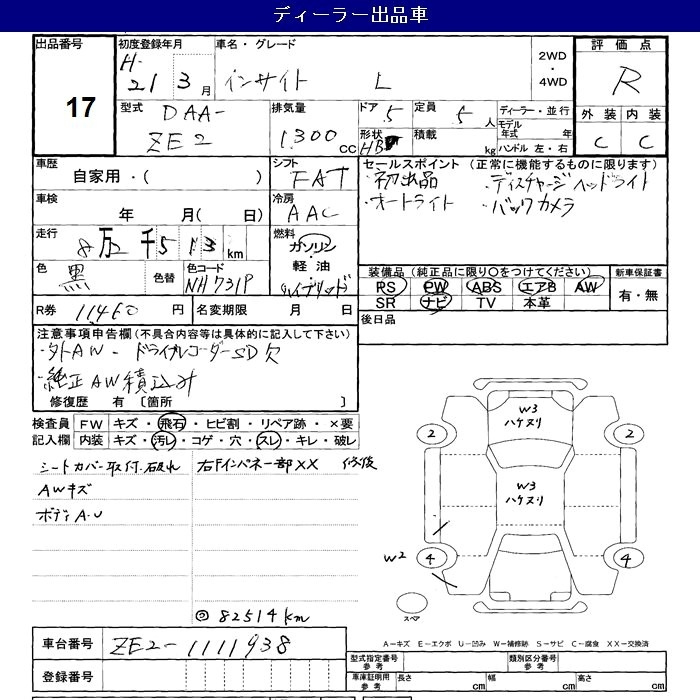 ディーラー出品車
出品番号 初度登録年月 車名・グレード 2WD・4WD 評価点
17 H-21 3月 インサイト L R
型式 排気量 ドア 定員 ディーラー・並行 外装 内装
DAA-ZE2 1300cc 5 5人 モデル年式 年 C C
形状 HB 積載 kg ハンドル 左・右
車歴 シフト セールスポイント (正常に機能するものに限ります)
自家用・( ) FAT ・初出品 ・ディスチャージヘッドライト
車検 冷房 ・オートライト ・バックカメラ
年 月( 日) AAC
走行 燃料
8万2千513km ガソリン・軽油・ハイブリッド
色 色替 色コード 装備品 (純正品に限り〇をつけてください) 新車保証書
黒 NH731P PS PW ABS エアB AW 有・無
SR ナビ TV 本革
R券 11460円 名変期限 月 日 後日品
注意事項申告欄 (不具合内容等は具体的に記入して下さい)
・外AW-ドライブレコーダーSD欠
・純正AW積込み
修復歴 有 〔箇所 〕
検査員 FW キズ・飛石・ヒビ割・リペア跡・×要
記入欄 内装 キズ・汚レ・コゲ・穴・スレ・キレ・破レ
シートカバー取付・破れ 右Fインパネ一部XX 修復
AWキズ
ボディA・U
◎82514km
W3
ハケヌリ
2 2
W3
ハケヌリ
W2 4 4
スペア
車台番号 ZE2-1111938
A-キズ E-エクボ U-凹み W-補修跡 S-サビ C-腐食 XX-交換済
登録番号
型式指定番号 参考 類別区分番号 参考
車庫証明用 参考 長さ cm 幅 cm 高さ cm